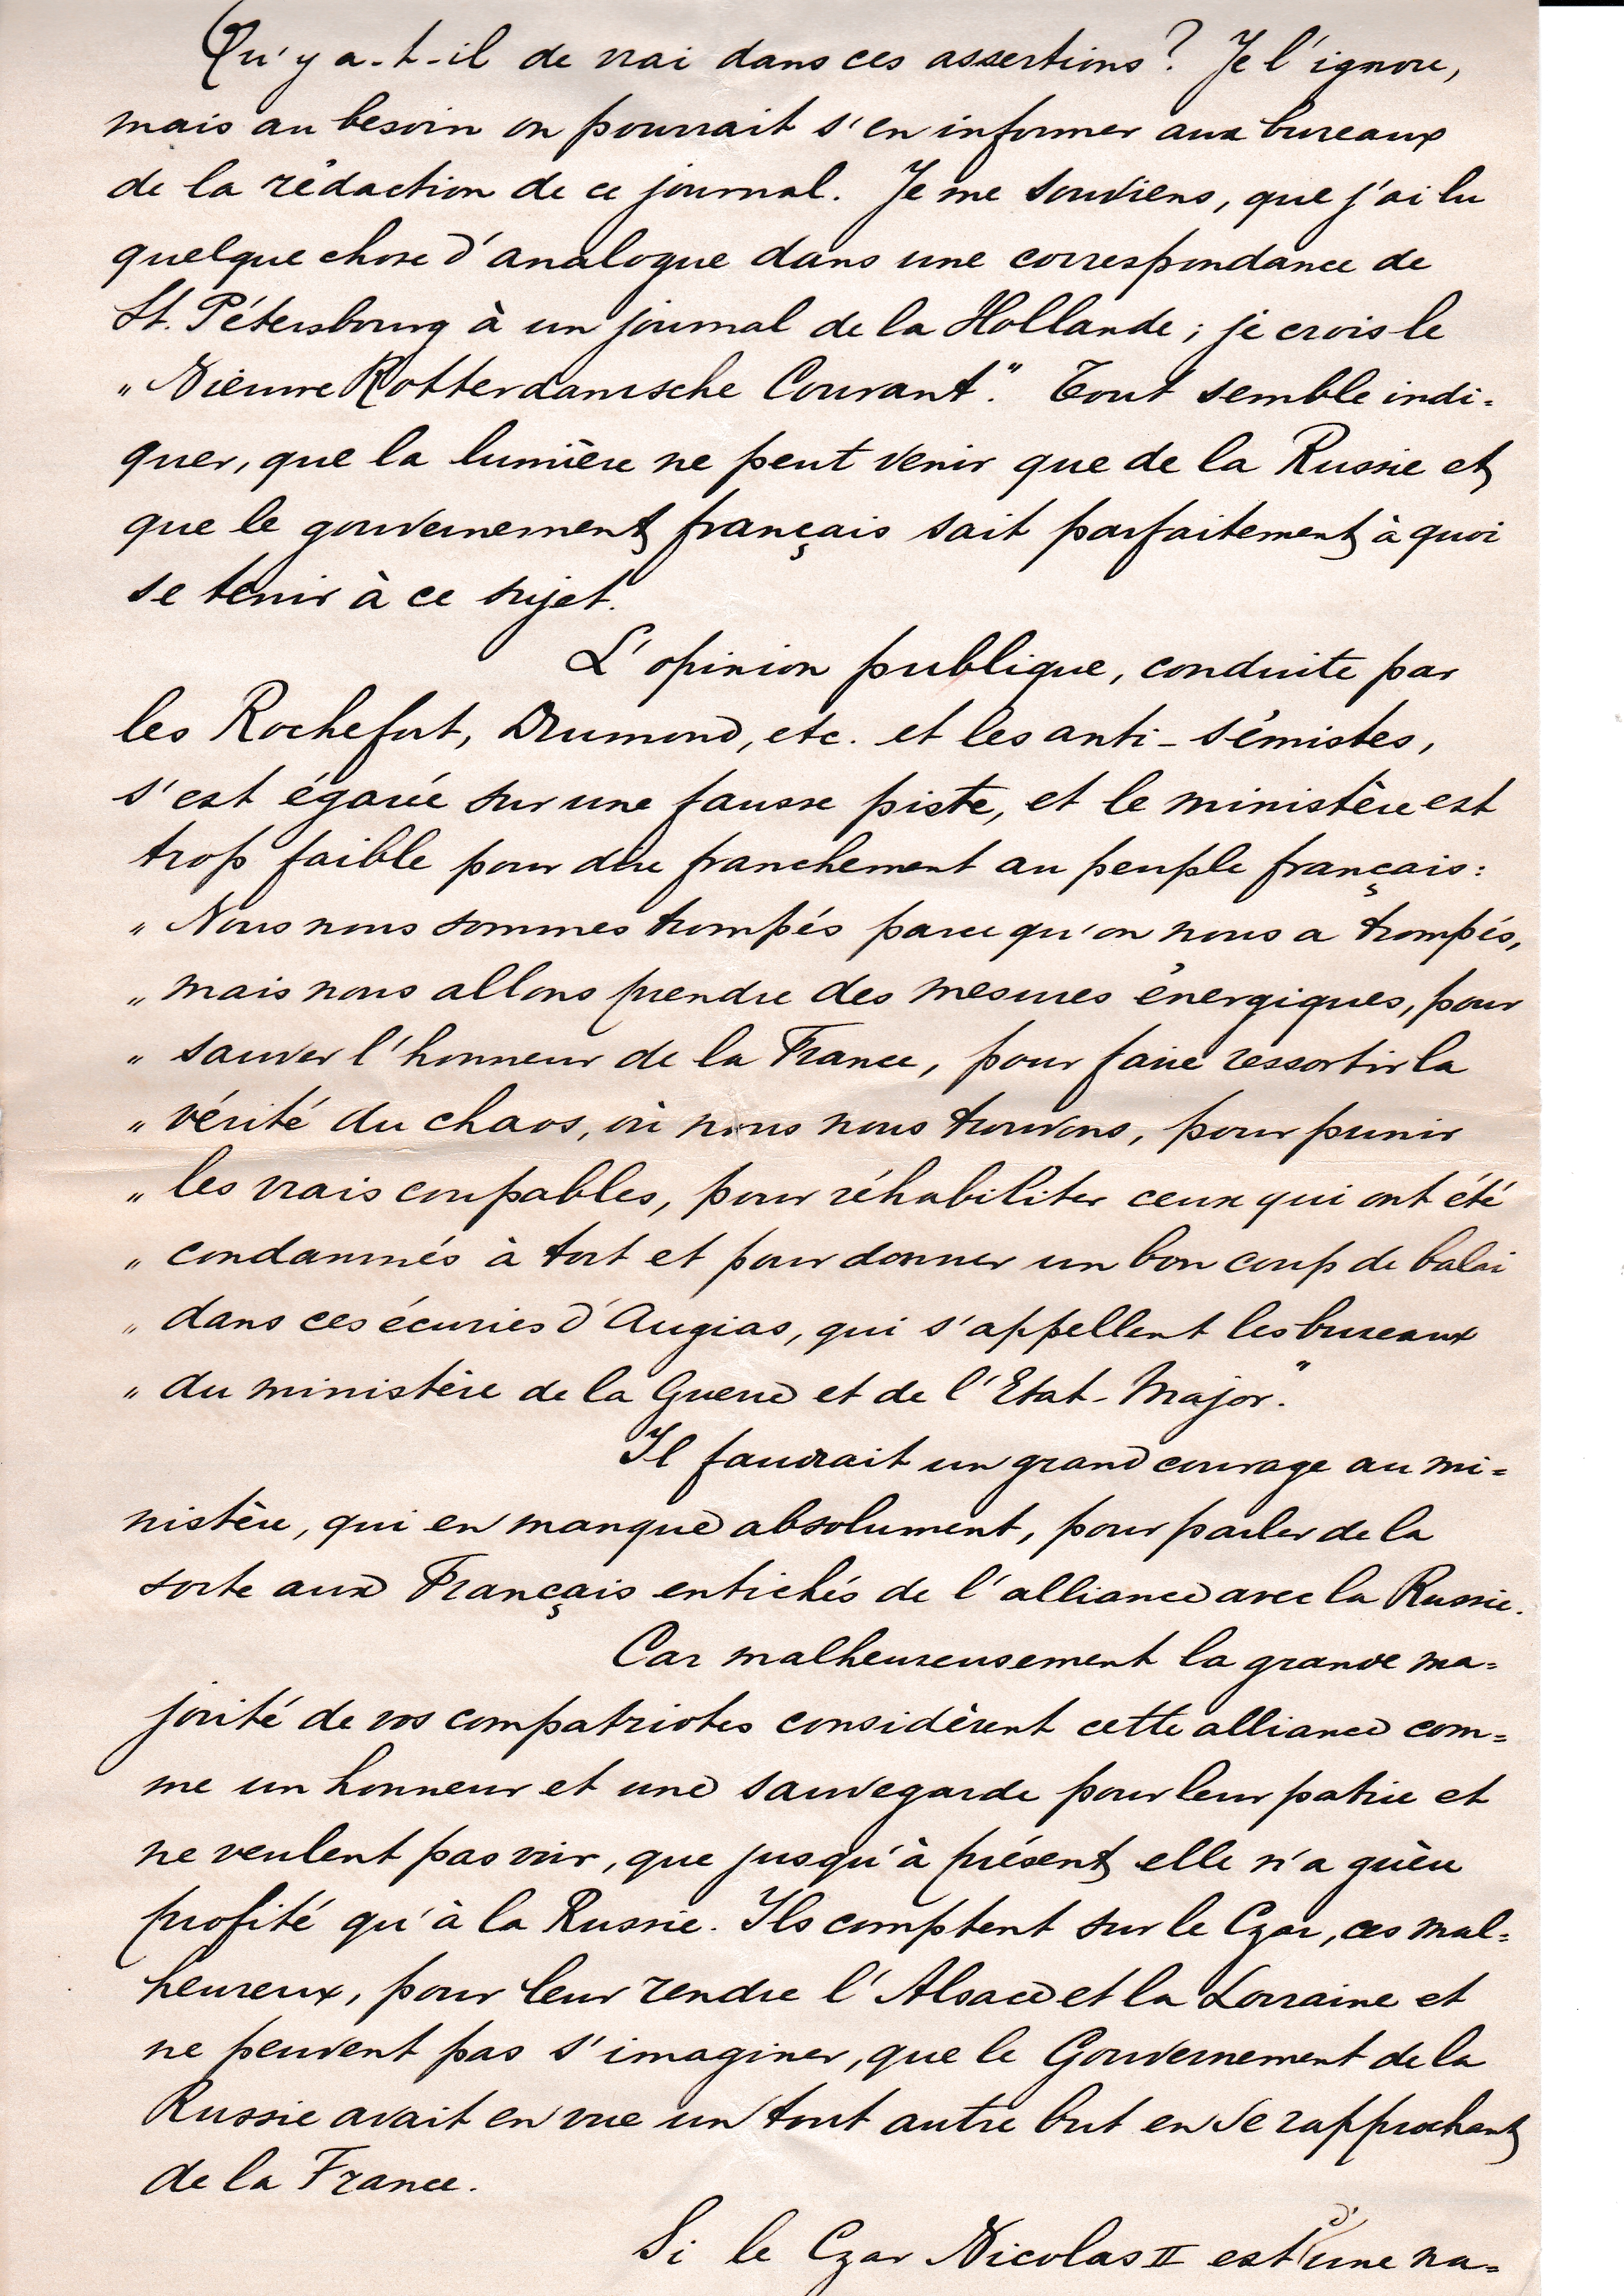 Qu'y a-t-il de vrai dans ces assertions? Je l'ignore,
mais au besoin on pourrait s'en informer aux bureaux
de la rédaction de ce journal. Je me souviens, que j'ai lu
quelque chose d'analogue dans une correspondance de
St. Pétersbourg à un journal de la Hollande; je crois le
„Nieuwe Rotterdamsche Courant." Tout semble indi=
quer, que la lumière ne peut venir que de la Russie et
que le gouvernement français sait parfaitement à quoi
se tenir à ce sujet.
L'opinion publique, conduite par
les Rochefort, Drumond, etc. et les anti-sémistes,
s'est égarée sur une fausse piste, et le ministère est
trop faible pour dire franchement au peuple français:
„Nous nous sommes trompés parce qu'on nous a trompés,
„mais nous allons prendre des mesures énergiques, pour
„sauver l'honneur de la France, pour faire ressortir la
„vérité du chaos, où nous nous trouvons, pour punir
„les vrais coupables, pour réhabiliter ceux qui ont été
„condamnés à tort et pour donner un bon coup de balai
„dans ces écuries d'Augias, qui s'appellent les bureaux
„du ministère de la Guerre et de l'Etat-Major."
Il faudrait un grand courage au mi=
nistère, qui en manque absolument, pour parler de la
sorte aux Français entichés de l'alliance avec la Russie.
Car malheureusement la grande ma=
jorité de vos compatriotes considèrent cette alliance com=
me un honneur et une sauvegarde pour leur patrie et
ne veulent pas voir, que jusqu'à présent elle n'a guère
profité qu'à la Russie. Ils comptent sur le Czar, ces mal=
heureux, pour leur rendre l'Alsace et la Lorraine et
ne peuvent pas s'imaginer, que le Gouvernement de la
Russie avait en vue un tout autre but en se rapprochant
de la France.
Si le Czar Nicolas II est d'une na=